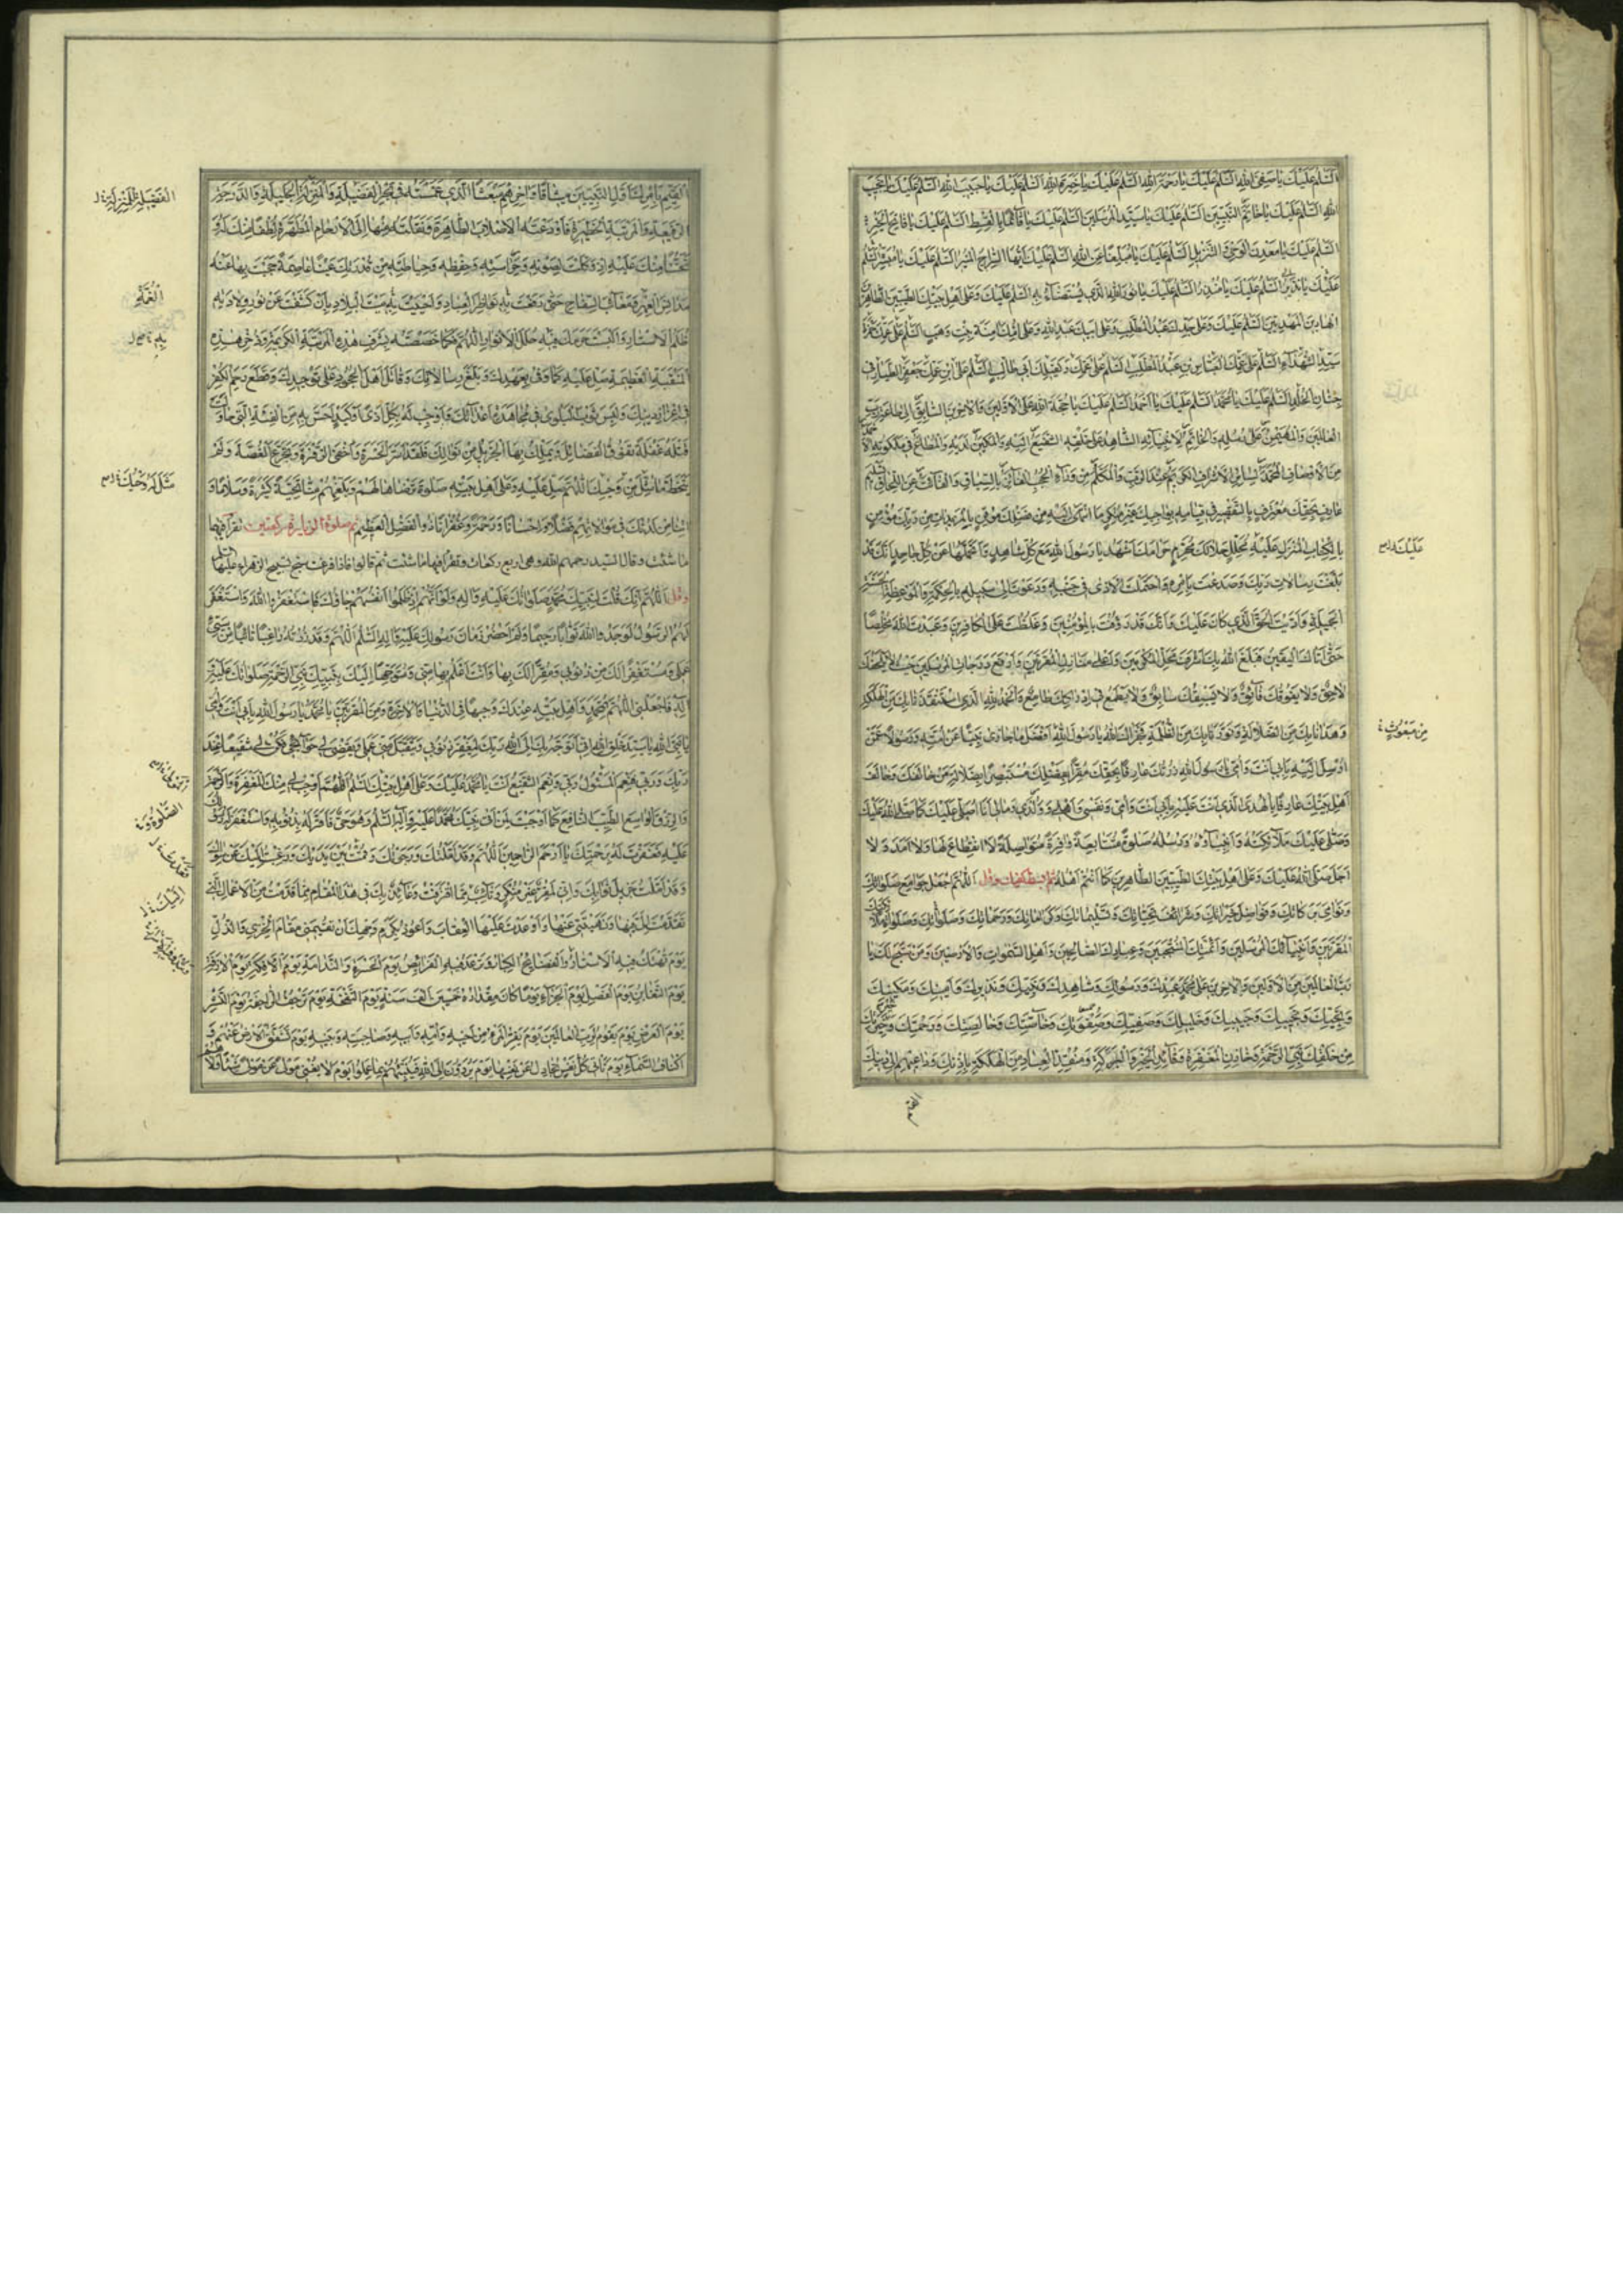 السلم عليك يا صفى الله السلم عليك يا رحمة الله السلم عليك يا خيرة الله السلم عليك يا حبيب الله السلم عليك يا نجيب
الله السلم عليك يا خاتم النبيين السلم عليك يا سيد المرسلين السلم عليك يا قائما بالقسط السلم عليك يا فاتح الخير
السلم عليك يا معدن الوحى والتنزيل السلم عليك يا مبلغا عن الله السلم عليك ايها السراج المنير السلم عليك يا مبشر السلم
عليك يا نذير السلم عليك يا منذر السلم عليك يا نور الله الذى يستضاء به السلم عليك وعلى اهل بيتك الطيبين الطاهرين
الهادين المهديين السلم عليك وعلى جدك عبد المطلب وعلى ابيك عبد الله وعلى امك امنة بنت وهب السلم على عمك حمزة
سيد الشهداء السلم على عمك العباس بن عبد المطلب السلم على عمك وكفيلك ابى طالب السلم على ابن عمك جعفر الطيار فى
جنان الخلد السلم عليك يا محمد السلم عليك يا احمد السلم عليك يا حجة الله على الاولين والاخرين السابق الى طاعة رب
العالمين والمهيمن على رسله والخاتم لانبيائه الشاهد على خلقه الشفيع اليه والمكين لديه والمطاع فى ملكوته الا
حمد من الاوصاف المحمد لسائر الاشراف الكريم عند الرب والمكلم من وراء الحجب الفائز بالسباق والفائت عن اللحاق تسليم
عارف بحقك معترف بالتقصير فى قيامه بواجبك غير منكر ما انتهى اليه من فضلك موقن بالمزيدات من ربك مؤمن
بالكتاب المنزل عليك محلل حلالك محرم حرامك اشهد يا رسول الله مع كل شاهد واتحملها عن كل جاحد انك قد
بلغت رسالات ربك وصدعت بامره واحتملت الاذى فى جنبه ودعوت الى سبيله بالحكمة والموعظة الحسنة
الجميلة واديت الحق الذى كان عليك وانك قد رؤفت بالمؤمنين وغلظت على الكافرين وعبدت الله مخلصا
حتى اتاك اليقين فبلغ الله بك اشرف محل المكرمين واعلى منازل المقربين وارفع درجات المرسلين حيث لا يلحقك
لاحق ولا يفوقك فائق ولا يسبقك سابق ولا يطمع فى ادراكك طامع والحمد لله الذى استنقذنا بك من الهلكة
وهدانا بك من الضلالة ونورنا بك من الظلمة فجزاك الله يا رسول الله افضل ما جازى نبيا عن امته ورسولا عمن
ارسل اليه بابى انت وامى يا رسول الله زرتك عارفا بحقك مقرا بفضلك مستبصرا بضلالة من خالفك وخالف
اهل بيتك عارفا بالهدى الذى انت عليه بابى انت وامى ونفسى واهلى وولدى ومالى انا اصلى عليك كما صلى الله عليك
وصلى عليك ملائكته وانبياؤه ورسله صلوة متتابعة وافرة متواصلة لا انقطاع لها ولا امد ولا
اجل صلى الله عليك وعلى اهل بيتك الطيبين الطاهرين كما انتم اهله ثم ابسط كفيك وقل اللهم اجعل جوامع صلواتك
ونوامى بركاتك وفواضل خيراتك وشرائف تحياتك وتسليماتك وكراماتك ورحماتك وصلواتك وصلوات ملائكتك
المقربين وانبيائك المرسلين وائمتك المنتجبين وعبادك الصالحين واهل السموات والارضين ومن سبح لك يا
رب العالمين من الاولين والاخرين على محمد عبدك ورسولك وشاهدك ونبيك ونذيرك وامينك ومكينك
ونجيك ونجيبك وحبيبك وخليلك وصفيك وصفوتك وخاصتك وخالصتك ورحمتك وخير خيرتك
من خلقك نبى الرحمة وخازن المغفرة وقائد الخير والبركة ومنقذ العباد من الهلكة باذنك وداعيهم الى دينك
القيم
عليك
من مبعوث
القيم بامرك اول النبيين ميثاقا واخرهم مبعثا الذى غمسته فى بحر الفضيلة والمنزلة الجليلة والدرجة
الرفيعة والمرتبة الخطيرة فاودعته الاصلاب الطاهرة ونقلته منها الى الارحام المطهرة لطفا منك له و
تحننا منك عليه اذ وكلت لصونه وحراسته وحفظه وحياطته من قدرتك عينا عاصمة حجبت بها عنه
مدانس العهر ومعائب السفاح حتى رفعت به نواظر العباد واحييت به ميت البلاد بان كشفت عن نور ولادته
ظلم الاستار والبست حرمك فيه حلل الانوار اللهم فكما خصصته بشرف هذه المرتبة الكريمة وذخر هذه
المنقبة العظيمة صل عليه كما وفى بعهدك وبلغ رسالاتك وقاتل اهل الجحود على توحيدك وقطع رحم الكفر
فى اعزاز دينك ولبس ثوب البلوى فى مجاهدة اعدائك واوجب له بكل اذى او كيد احس به من الفئة التى حاولت
قتله فضيلة تفوق الفضائل ويملك بها الجزيل من نوالك فلقد اسر الحسرة واخفى الزفرة وتجرع الغصة ولم
يتخط ما مثل من وحيك اللهم صل عليه وعلى اهل بيته صلوة ترضاها لهم وبلغهم منا تحية كثيرة وسلاما و
اتنا من لدنك فى موالاتهم فضلا واحسانا ورحمة وغفرانا ذو الفضل العظيم ثم صلوة الزيارة ركعتين تقرأ فيها
ما شئت وقال السيد رحمهم الله وهى اربع ركعات وتقرأ فيها ما شئت ثم قالوا فاذا فرغت سبح تسبيح الزهراء عليها السلم
وقل اللهم انك قلت لنبيك محمد صلواتك عليه واله ولو انهم اذ ظلموا انفسهم جاؤك فاستغفروا الله واستغفر
لهم الرسول لوجدوا الله توابا رحيما ولم احضر زمان رسولك عليه واله السلم اللهم وقد زرته راغبا تائبا من سيئ
عملى ومستغفرا لك من ذنوبى ومقرا لك بها وانت اعلم بها منى ومتوجها اليك بنبيك نبى الرحمة صلواتك عليه
واله فاجعلنى اللهم بمحمد واهل بيته عندك وجيها فى الدنيا والاخرة ومن المقربين يا محمد يا رسول الله بابى انت وامى
يا نبى الله يا سيد خلق الله انى اتوجه بك الى الله ربك ليغفر ذنوبى ويتقبل منى عملى ويقضى لى حوائجى فكن لى شفيعا عند
ربك وربى فنعم المسئول ربى ونعم الشفيع انت يا محمد عليك وعلى اهل بيتك السلم اللهم اوجب لى منك المغفرة والرحمة
والرزق الواسع الطيب النافع كما اوجبت لمن اتى نبيك محمدا عليه واله السلم وهو حى فاقر له بذنوبه واستغفر له رسولك
عليه فغفرت له برحمتك يا ارحم الراحمين اللهم وقد املتك ورجوتك وقمت بين يديك ورغبت اليك عن سواك
وقد املت جزيل ثوابك وانى لمقر غير منكر وتائب مما اقترفت وعائذ بك فى هذا المقام مما قدمت من الاعمال التى
تقدمت الى فيها ونهيتنى عنها واوعدت عليها العقاب واعوذ بكرم وجهك ان تقيمنى مقام الخزى والذل
يوم تهتك فيه الاستار والفضائح الكبار وترعد فيه الفرائص يوم الحسرة والندامة يوم الافكة يوم الازفة
يوم التغابن يوم الفصل يوم الجزاء يوما كان مقداره خمسين الف سنة يوم النفخة يوم ترجف الراجفة يوم النشر
يوم العرض يوم يقوم لرب العالمين يوم يفر المرء من اخيه وامه وابيه وصاحبته وبنيه يوم تشقق الارض عنهم و
اكناف السماء يوم تاتى كل نفس تجادل عن نفسها يوم يردون الى الله فينبئهم بما عملوا يوم لا يغنى مولى عن مولى شيئا ولا
الفضيلة المنزلة
به
الصلوة
اليك